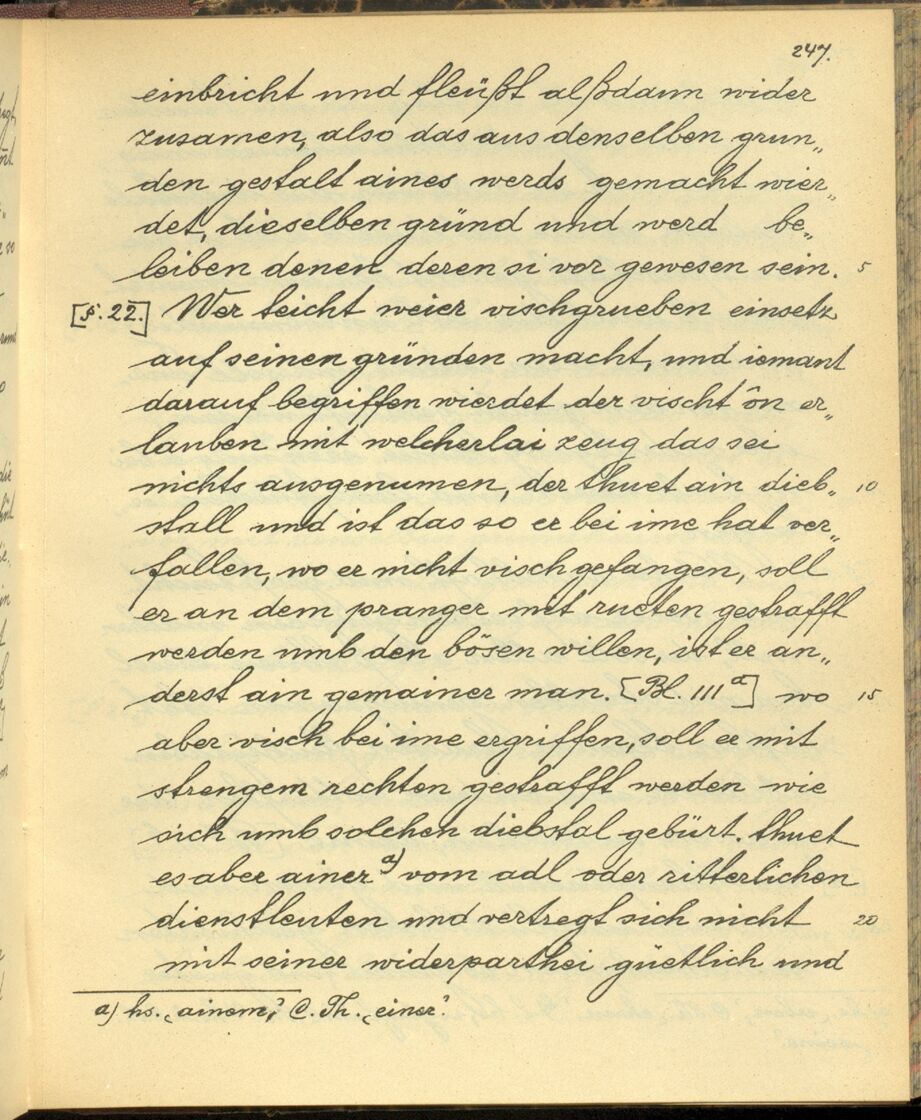 247.
einbricht und fleüßt alßdann wider
zusamen, also das aus denselben grun„
den gestalt aines werds gemacht wier„
det, dieselben gründ und werd be„
leiben denen deren si vor gewesen sein. 5
[§. 22.] Wer teicht weier vischgrueben einsetz
auf seinen gründen macht, und iemant
darauf begriffen wierdet der vischt ôn er„
lauben mit welcherlai zeug das sei
nichts ausgenumen, der thuet ain dieb„ 10
stall und ist das so er bei ime hat ver„
fallen, wo er nicht visch gefangen, soll
er an dem pranger mit rueten gestrafft
werden umb den bösen willen, ist er an„
derst ain gemainer man. [Bl. 111ᵃ] wo 15
aber visch bei ime ergriffen, soll er mit
strengem rechten gestrafft werden wie
sich umb solchen diebstal gebürt. thuet
es aber ainer ᵃ⁾ vom adl oder ritterlichen
dienstleuten und vertregt sich nicht 20
mit seiner widerparthei güetlich und
a) hs. „ainem“, C. Th. „einer“.